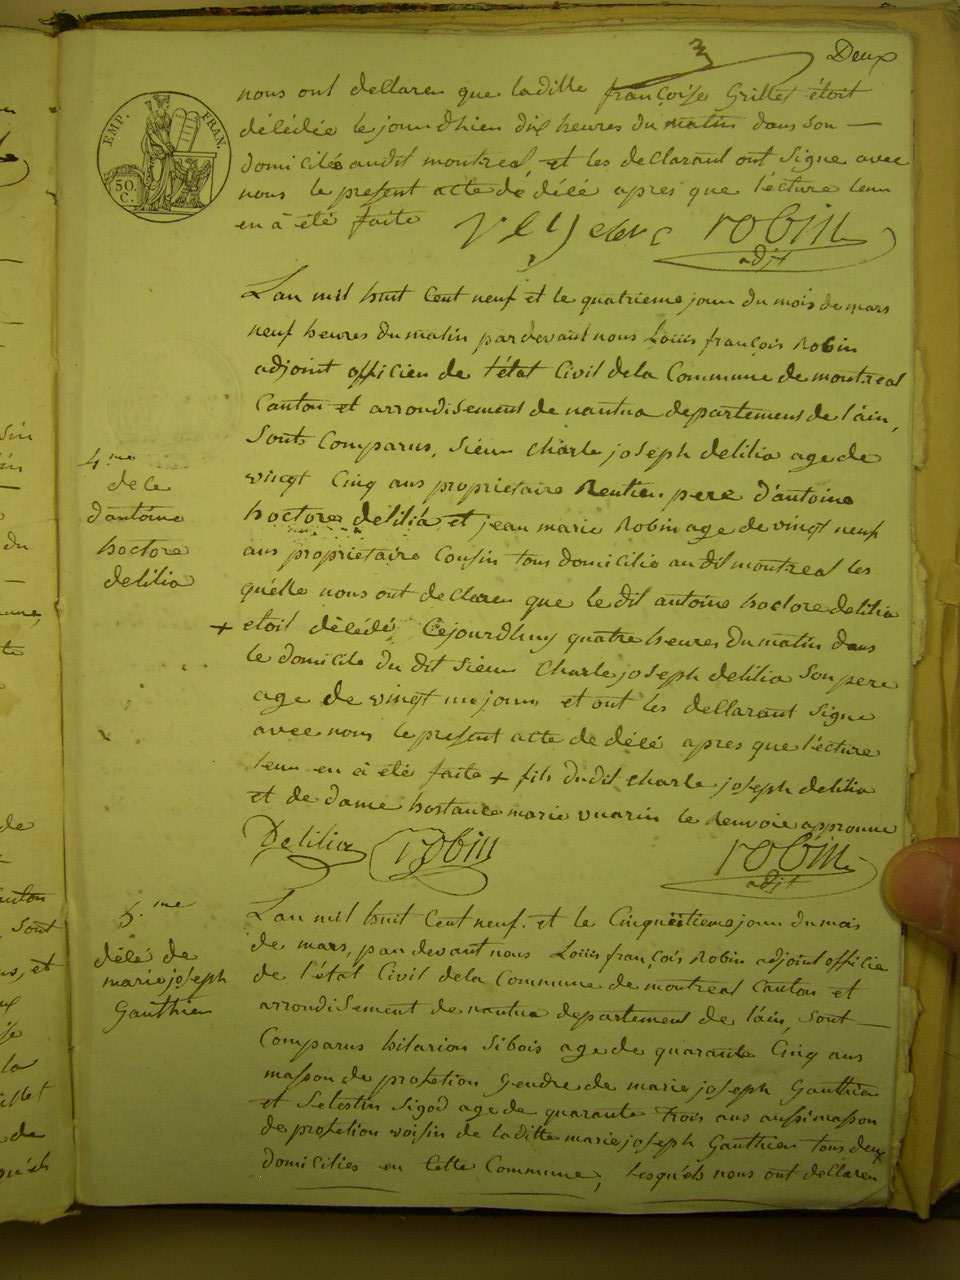 Deux
EMP. FRAN.
50. C.
nous ont declarer que ladille françoise Grillet étoit
décédée le jour dhier dix heures du matin dans son
domicile audit montreal, et les declarant ont signe avec
nous le present acte de décé apres que lécture leur
en à été faite
robin
adjt
L'an mil huit Cent neuf et le quatrieme jour du mois de mars
neuf heures du matin pardevant nous Louis françois Robin
adjoint officier de l'état Civil de la Commune de montreal
Canton et arrondisement de nantua departement de l'ain,
Sont Comparus, Sieur Charle joseph delilia age de
vingt Cinq ans propriétaire Rentier pere d'antoine
hoctore delilia et jean marie Robin age de vingt neuf
ans propriétaire Cousin tous domicilie audit montreal les
quélle nous ont declarer que le dit antoine hoctore delilia
+ etoit décédé Cejourdhuy quatre heures du matin dans
le domicile du dit Sieur Charle joseph delilia Son pere
age de vingt un jours et ont les declarant signe
avec nous le present acte de décé apres que l'écture
leur en à été faite + fils dudit Charle joseph delilia
et de dame hostance marie vuarin le Renvoie approuve
Delilia robin robin
adjt
4.me
de ce
d'antoine
hoctore
delilia
L'an mil huit Cent neuf. et le Cinquiétieme jour du mois
de mars, par devant nous Louis françois Robin adjoint officie
de l'état Civil de la Commune de montreal Canton et
arrondisement de nantua departement de l'ain, sont
Comparus hilarion Sibois age de quarante Cinq ans
masson de profetion Gendre de marie joseph Gauthier
et Selestin Sigod age de quarante trois ans aussi masson
de profetion voisin de laditte marie joseph Gauthier tous deux
domicilies en Cette Commune, lesquéls nous ont declarer
5.me
décé de
marie joseph
Gauthier